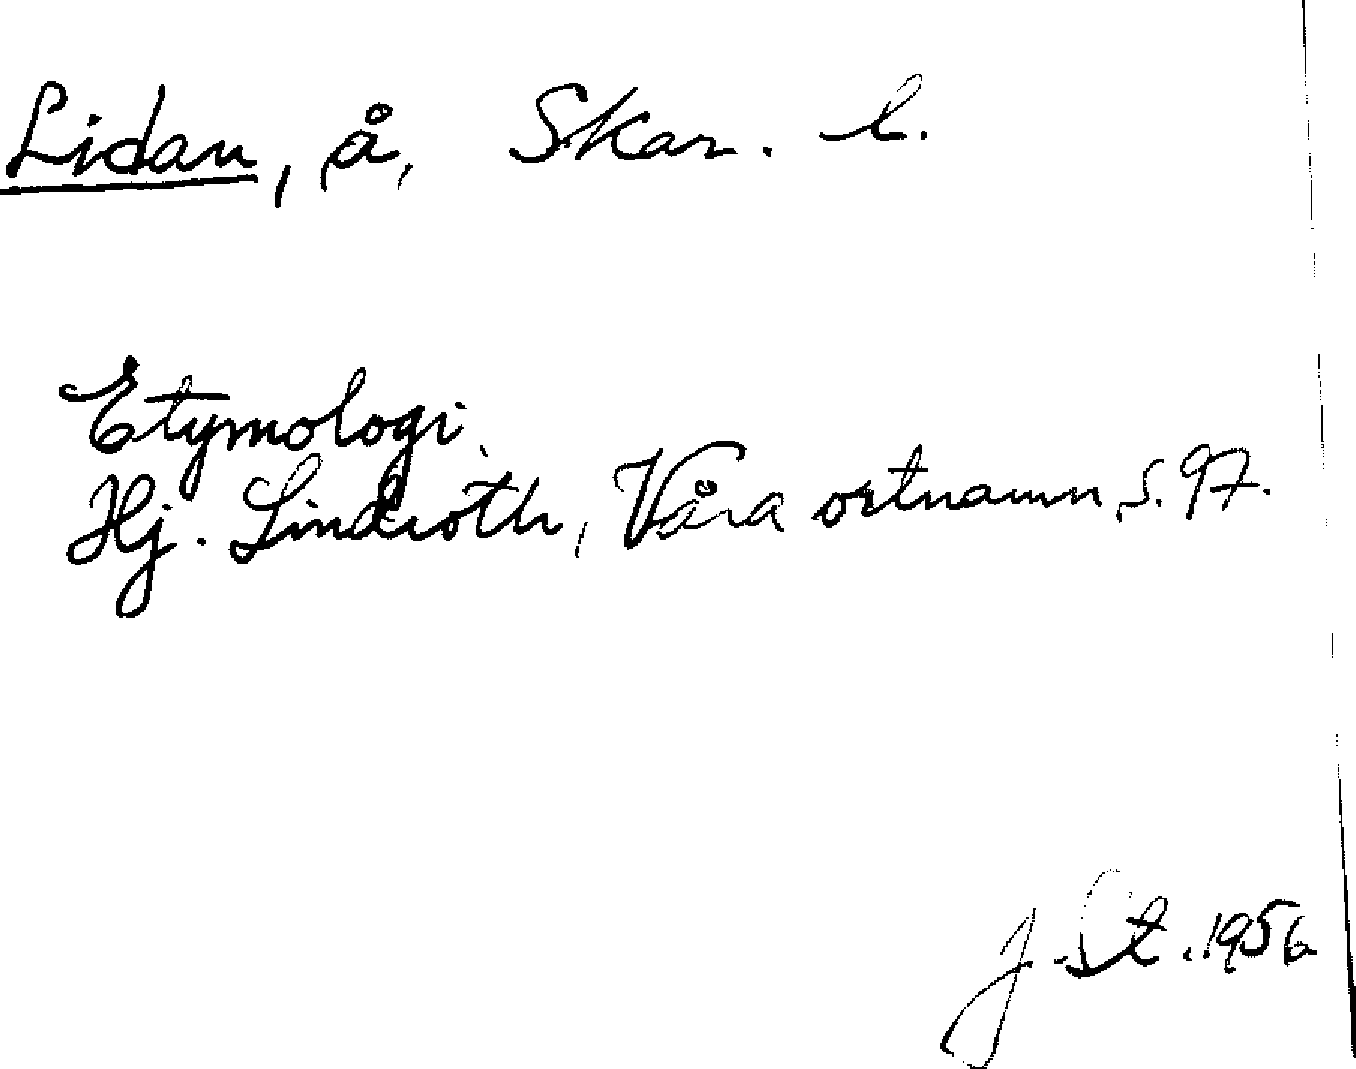 Lidan, å, Skar. l.
Etymologi.
Hj. Lindroth, Våra ortnamn, s. 97.
J. St. 1956